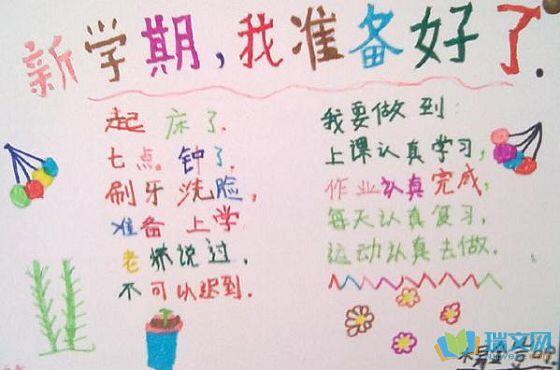 新学期，我准备好了.
起床了.
七点钟了.
刷牙洗脸，
准备上学
老师说过，
不可以迟到.
我要做到：
上课认真学习，
作业认真完成，
每天认真复习，
运动认真去做.
瑞文网